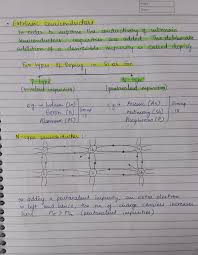 Extrinsic Semiconductors
In order to improve the conductivity of intrinsic
semiconductors, impurities are added. The deliberate
addition of a desireable impurity is called doping.
Two types of Doping in Si or Ge
P-type
N-type
(trivalent impurities)
(pentavalent impurities)
e.g → Indium (In)
Boron (B)
Aluminium (Al)
Group
e.g → Arsenic (As)
Antimony (Sb)
Phosphorus (P)
Group
15
N-type semiconductor
on adding a pentavalent impurity, an extra electron
is left and hence, the no. of charge carriers increases
here (pentavalent impurities)